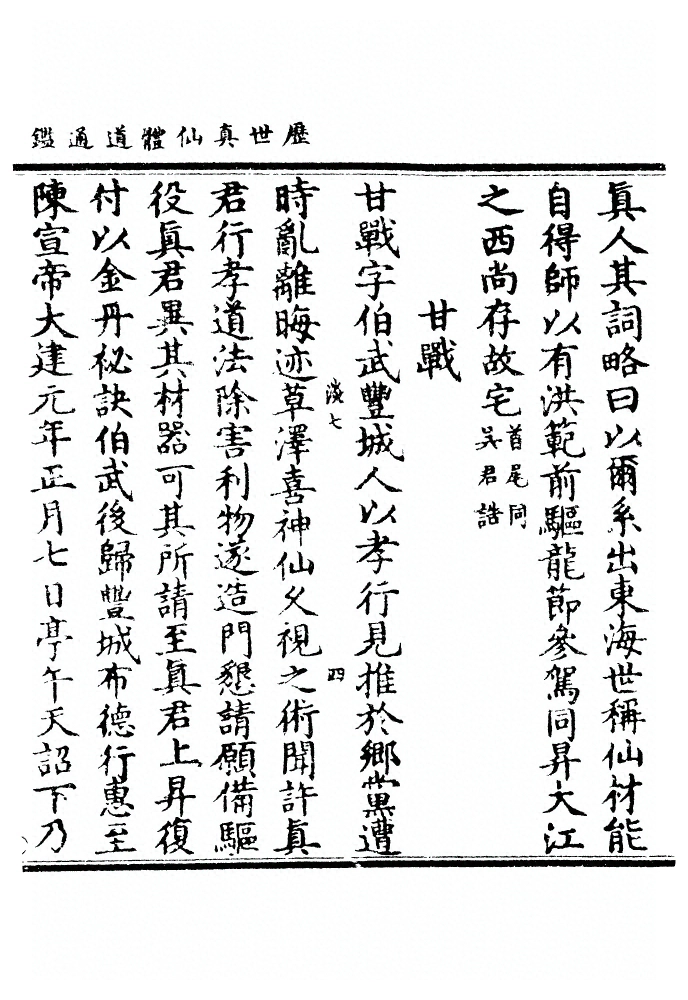 歷世真仙體道通鑑
眞人其詞略曰以爾系出東海世稱仙材能
自得師以有洪範前驅龍節參駕同昇大江
之西尚存故宅首尾同吳君誥
甘戰
甘戰字伯武豐城人以孝行見推於鄉黨遭
淡七
四
時亂離晦迹草澤喜神仙久視之術聞許眞
君行孝道法除害利物遂造門懇請願備驅
役眞君異其材器可其所請至眞君上昇復
付以金丹祕訣伯武後歸豐城布德行惠至
陳宣帝大建元年正月七日亭午天詔下乃